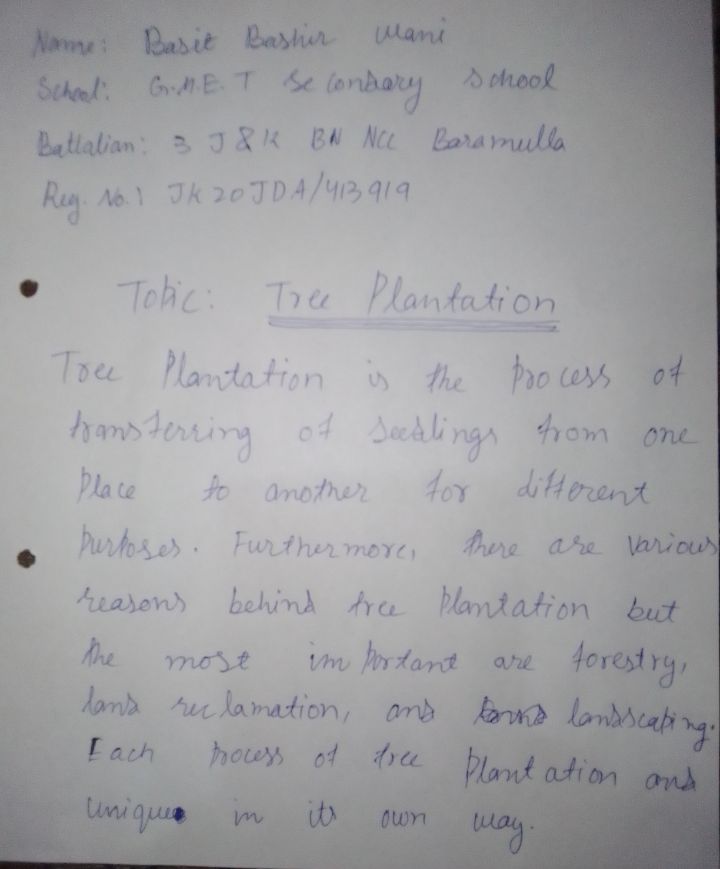 Name: Basit Bashir Wani
School: G.M.E.T Secondary school
Battalian: 3 J & K BN NCC Baramulla
Reg. No.: JK20JDA/413919
Topic: Tree Plantation
Tree Plantation is the process of
transferring of seedlings from one
Place to another for different
purposes. Furthermore, there are various
reasons behind tree plantation but
the most important are forestry,
land reclamation, and landscaping.
Each process of tree Plantation and
unique in its own way.